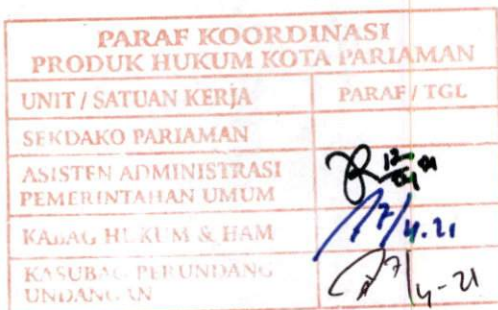 PARAF KOORDINASI
PRODUK HUKUM KOTA PARIAMAN
UNIT / SATUAN KERJA PARAF / TGL
SEKDAKO PARIAMAN
ASISTEN ADMINISTRASI
PEMERINTAHAN UMUM
KABAG HUKUM & HAM 7/4.21
KASUBAG PERUNDANG
UNDANGAN 7/4-21